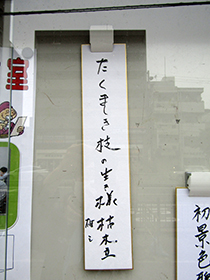 たくましき枝の生き様枯木立
初景色